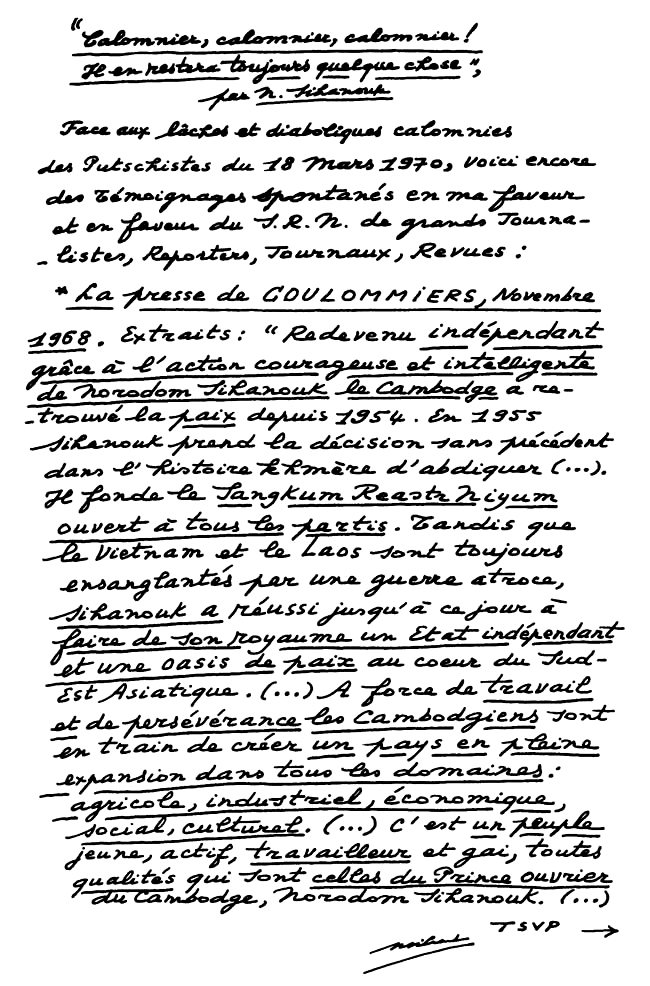 "Calomniez, calomniez, calomniez !
Il en restera toujours quelque chose",
par N. Sihanouk
Face aux lâches et diaboliques calomnies
des Putschistes du 18 Mars 1970, voici encore
des témoignages spontanés en ma faveur
et en faveur du S.R.N. de grands Journa-
- listes, Reporters, Journaux, Revues :
* La presse de COULOMMIERS, Novembre
1968. Extraits : "Redevenu indépendant
grâce à l'action courageuse et intelligente
de Norodom Sihanouk le Cambodge a re-
- trouvé la paix depuis 1954. En 1955
Sihanouk prend la décision sans précédent
dans l'histoire khmère d'abdiquer (...).
Il fonde le Sangkum Reastr Niyum
ouvert à tous les partis. Tandis que
le Vietnam et le Laos sont toujours
ensanglantés par une guerre atroce,
Sihanouk a réussi jusqu'à ce jour à
faire de son royaume un Etat indépendant
et une oasis de paix au coeur du Sud-
Est Asiatique. (...) A force de travail
et de persévérance les Cambodgiens sont
en train de créer un pays en pleine
expansion dans tous les domaines :
agricole, industriel, économique,
social, culturel. (...) C'est un peuple
jeune, actif, travailleur et gai, toutes
qualités qui sont celles du Prince ouvrier
du Cambodge, Norodom Sihanouk. (...)
TSVP →